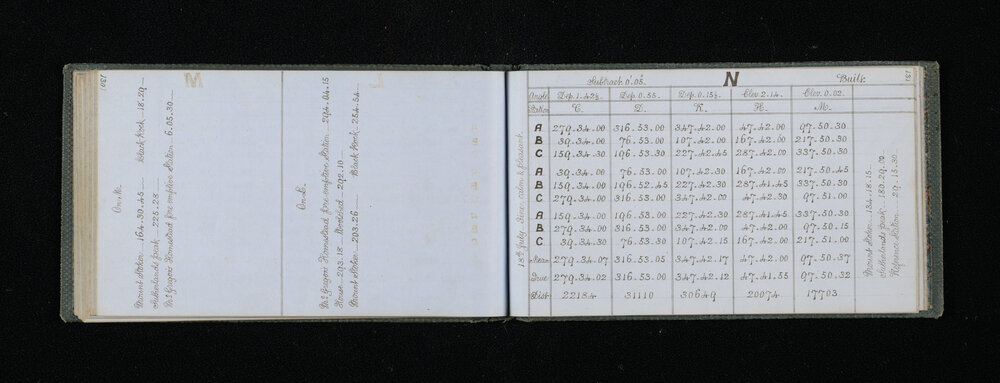 130
M
On M.
Mount Stoker 164.30.45 Black Rock 18.29
Sutherlands peak 225.28
McGregors Homestead pre emptive Station 6.05.30
L
On L.
McGregors Homestead pre emptive Station 294.04.15
House 293.18 Woolshed 292.10
Mount Stoker 203.26 Black Rock 254.54
131
Subtract 0'.05". N Built.
Angle Dep. 1.42½ Dep. 0.55. Dep. 0.15½ Elev. 2.14. Elev. 0.02.
Station C. D. K. H. M.
A 279.34.00 316.53.00 347.42.00 47.42.00 97.50.30
B 39.34.00 76.53.00 107.42.00 167.42.00 217.50.30
C 159.34.30 196.53.30 227.42.45 287.42.00 337.50.30
A 39.34.00 76.53.00 107.42.30 167.42.00 217.50.45
B 159.34.00 196.52.45 227.42.30 287.41.45 337.50.30
C 279.34.00 316.53.00 347.42.00 47.42.30 97.51.00
A 159.34.00 196.53.00 227.42.30 287.41.45 337.50.30
B 279.34.00 316.53.00 347.42.00 47.42.00 97.50.15
C 39.34.30 76.53.30 107.42.15 167.42.00 217.51.00
Mean 279.34.07 316.53.05 347.42.17 47.42.00 97.50.37
True 279.34.02 316.53.00 347.42.12 47.41.55 97.50.32
Dist 22184 31110 30649 20074 17703
18th July Fine, calm & pleasant.
Mount Stoker 134.18.15
Sutherlands peak 180.29.00
Reference Station 29.15.30